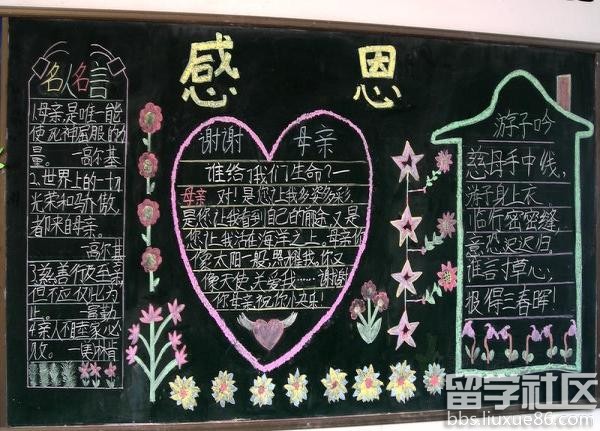 感 恩
名人名言
1母亲是唯一能
使死神屈服的力
量。 —高尔基
2.世界上的一切
光荣和骄傲,
都来自母亲。
—高尔基
3慈善行政至亲
但不应仅此为
止。—富勒
4亲人不睦家必
败。
谢谢 母亲
谁给了我们生命?—
母亲 对!是您让我多姿多彩,
是您让我看到自己的前途,又是
您让我活在海洋之上。母亲你
像太阳一般,照耀我。你又
像天使,关爱我……谢谢
你母亲,祝你小快乐!
游子吟
慈母手中线,
游子身上衣。
临行密密缝,
意恐迟迟归。
谁言寸草心,
报得三春晖!
留学社区
bbs.liuxue86.com